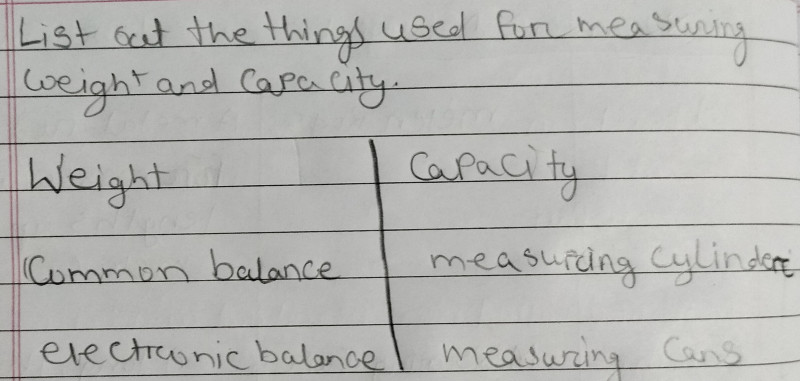 List out the things used for measuring
weight and capacity.
Weight Capacity
Common balance measuring cylinder
electronic balance measuring cans